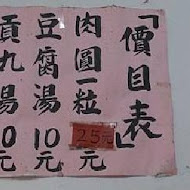 「價目表」
肉圓一粒25元
豆腐湯10元
貢丸湯0元